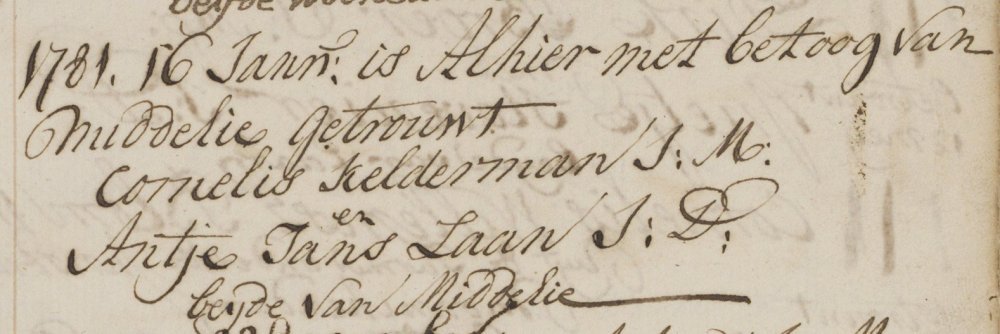 beyde
1781. 16 Jann: is Alhier met betoog van
middelie getrouwt
Cornelis Kelderman J: M:
en
Antje Jans Laan J: D:
beyde van Middelie